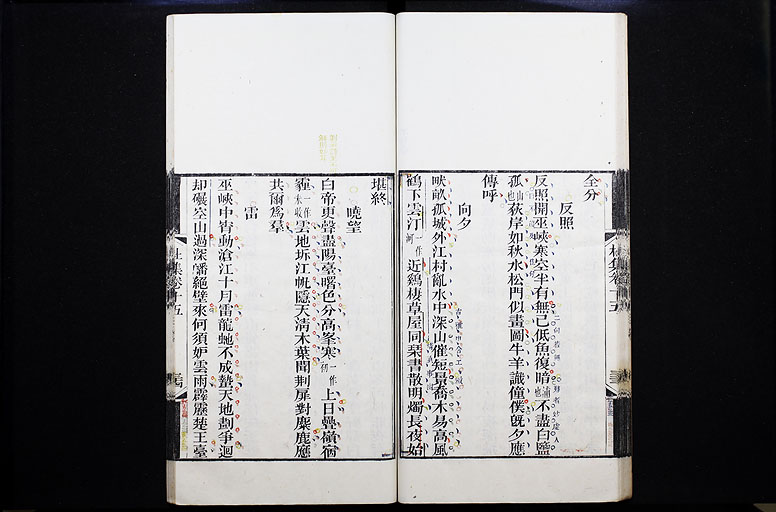 全分
反照
反照開巫峽寒空半有無已低魚復暗浦也不盡白鹽
孤山也荻岸如秋水松門似畫圖牛羊識僮僕旣夕應
傳呼
向夕
畎畝孤城外江村亂水中深山催短景喬木易高風
鶴下雲汀一作河近鷄棲草屋同琴書散明燭長夜始
堪終
曉望
白帝更聲盡陽臺曙色分高峯寒一作初上日疊嶺宿
霾一作未收雲地坼江帆隱天清木葉聞荆扉對麋鹿應
共爾爲羣
雷
巫峽中宵動滄江十月雷龍虵不成蟄天地劃爭迴
却碾空山過深蟠絕壁來何須妒雲雨霹靂楚王臺